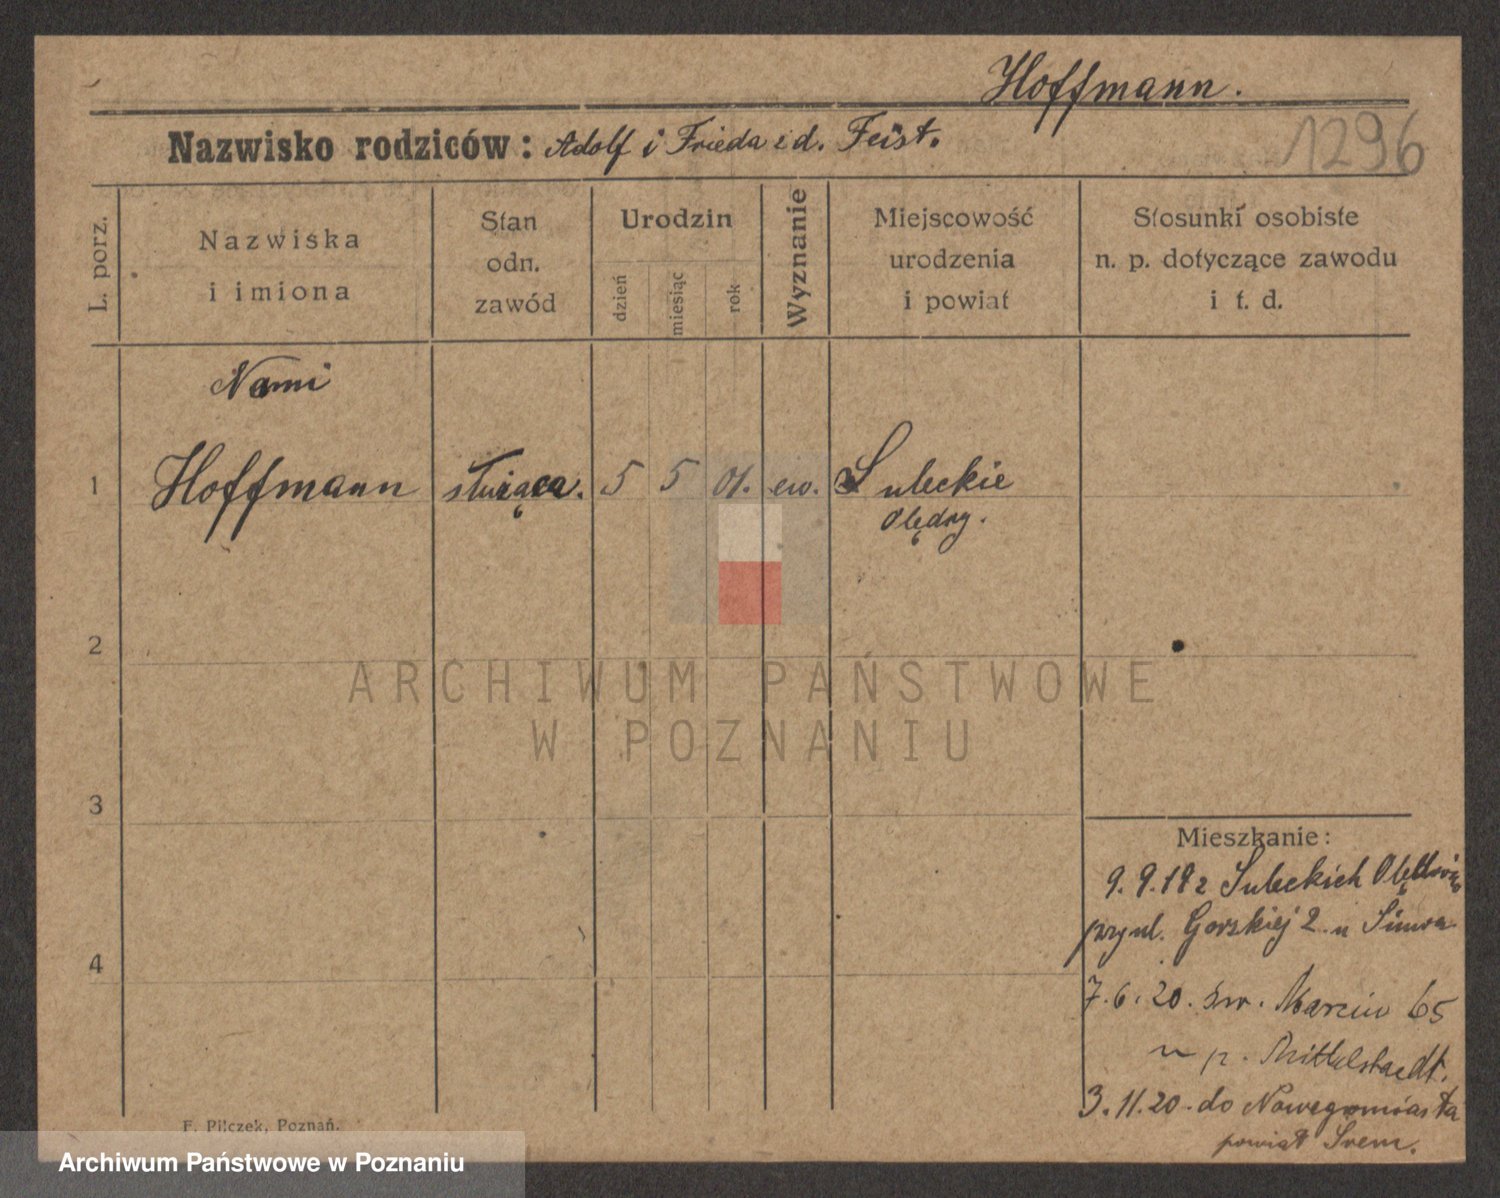 Hoffmann.
Nazwisko rodziców: Adolf i Frieda z d. Feist.
1296
L. porz.
Nazwiska
i imiona
Stan
odn.
zawód
Urodzin
dzień
miesiąc
rok
Wyznanie
Miejscowość
urodzenia
i powiat
Stosunki osobiste
n. p. dotyczące zawodu
i t. d.
Nami
1 Hoffmann służąca. 5 5 01. ew. Suleckie
Olędry.
2
ARCHIWUM PAŃSTWOWE
W POZNANIU
3
4
Mieszkanie:
9. 9. 19 z Suleckich
przy ul. Gorskiej 2 u
7. 6. 20. św. Marcin 65
u p. Mittelstaedt.
3. 11. 20. do Nowegomiasta
powiat Srem.
F. Pilczek, Poznań.
Archiwum Państwowe w Poznaniu